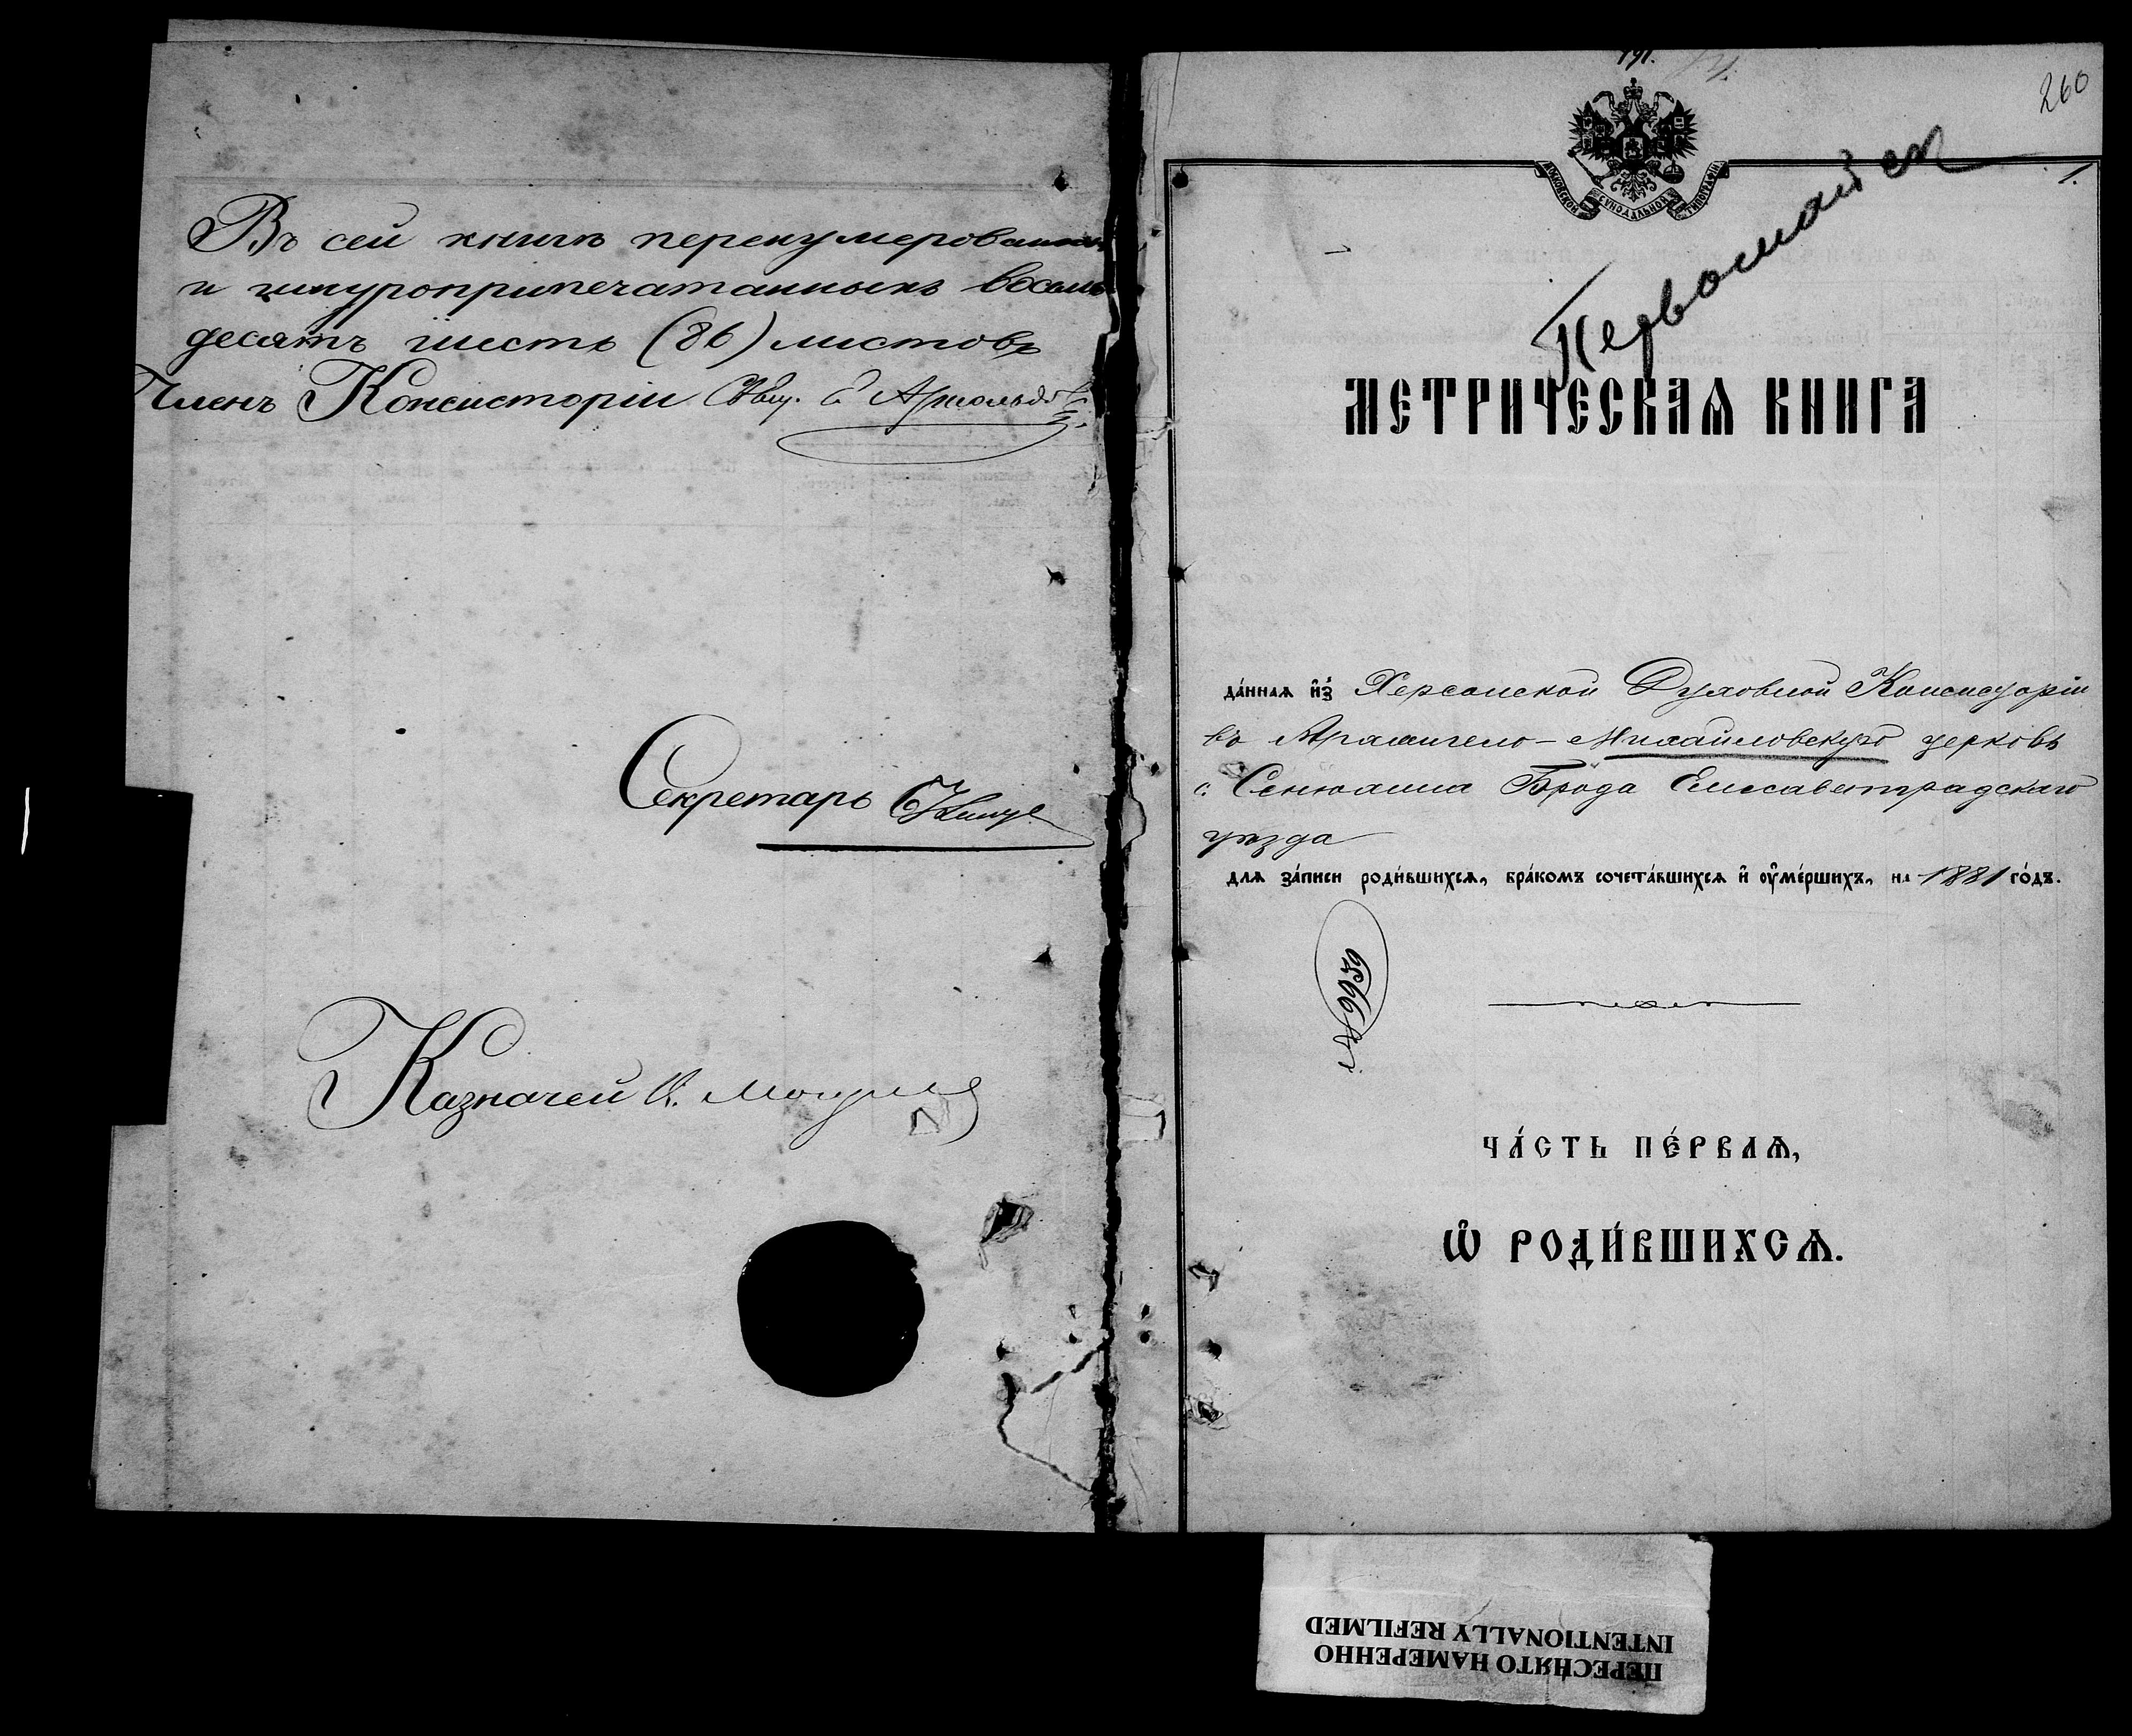 Въ сей книгѣ перенумерованныхъ
и шнуроприпечатанныхъ восемь
десятъ шесть (86) листовъ
Членъ Консисторіи Свящ.
Секретарь
Казначей
260
1.
МОСКОВСКОЙ СѴНОДАЛЬНОЙ ТИПОГРАФІИ
Первомайск
МЕТРИЧЕСКАѦ КНИГА
да́ннаѧ и҆з̾ Херсонской Духовной Консисторіи
въ Архангело-Михайловскую церковь
с. Сенюхина Брода Елисаветградскаго
уѣзда
длѧ за́писи роди́вшихсѧ, бра́комъ сочета́вшихсѧ и҆ ᲂу҆ме́ршихъ, на 1881 го́дъ.
ЧА́СТЬ ПЕ́РВАѦ,
Ѡ҆ РОДИ́ВШИХСѦ.
ПЕРЕСНЯТО НАМЕРЕННО
INTENTIONALLY REFILMED